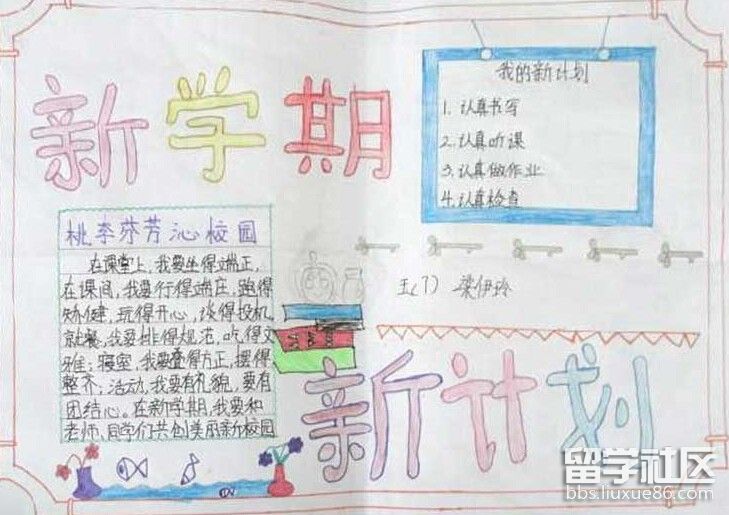 新学期
我的新计划
1. 认真书写
2. 认真听课
3. 认真做作业
4. 认真检查
桃李芬芳沁校园
在课堂上，我要坐得端正，
在课间，我要行得端庄，跑得
矫健，玩得开心，谈得投机，
就餐，我要排得规范，吃得文
雅；寝室，我要叠得方正，摆得
整齐，活动，我要有礼貌，要有
团结心。在新学期，我要和
老师、同学们共创美丽新校园
五(7) 梁伊玲
新计划
留学社区
bbs.liuxue86.com